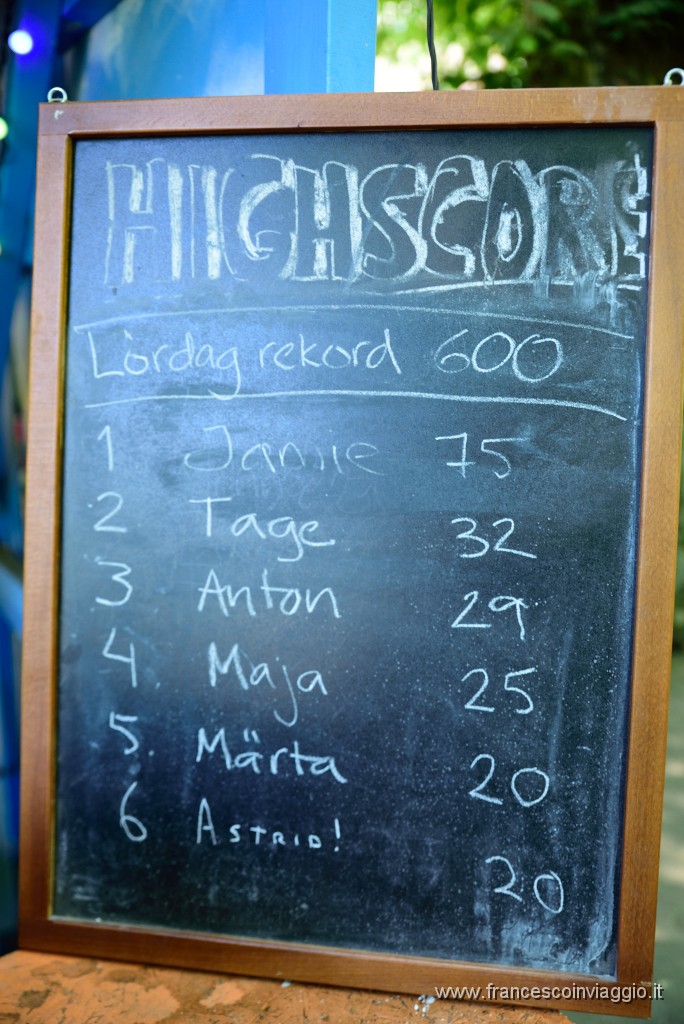 HIGHSCORE
Lördag rekord 600
1 Jamie 75
2 Tage 32
3 Anton 29
4. Maja 25
5. Märta 20
6 ASTRID! 20
www.francescoinviaggio.it